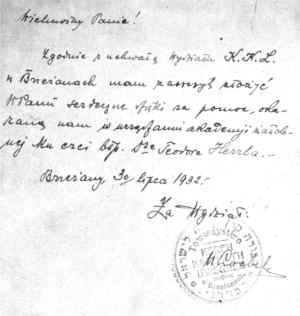 Wielmożny Panie!
Zgodnie z uchwałą Wydziału K.K.L.
w Brzeżanach mam zaszczyt złożyć
WPanu serdeczne dzięki za pomoc, oka-
zaną nam w urządzaniu akademji żałob-
nej ku czci błp. Dra Teodora Herzla.-
Brzeżany 30 lipca 1932.-
Za Wydział: